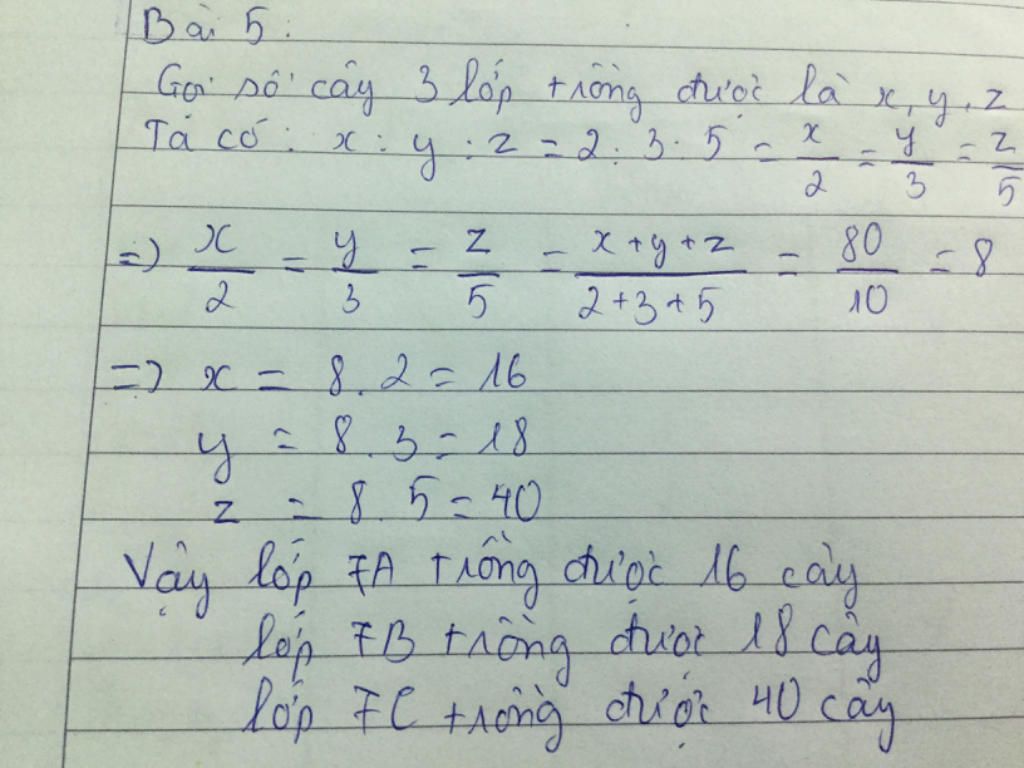 Bài 5:
Gọi số cây 3 lớp trồng được là x, y, z
Ta có: x : y : z = 2 : 3 : 5 = x/2 = y/3 = z/5
=> x/2 = y/3 = z/5 = (x+y+z)/(2+3+5) = 80/10 = 8
=> x = 8.2 = 16
y = 8.3 = 18
z = 8.5 = 40
Vậy lớp 7A trồng được 16 cây
lớp 7B trồng được 18 cây
lớp 7C trồng được 40 cây